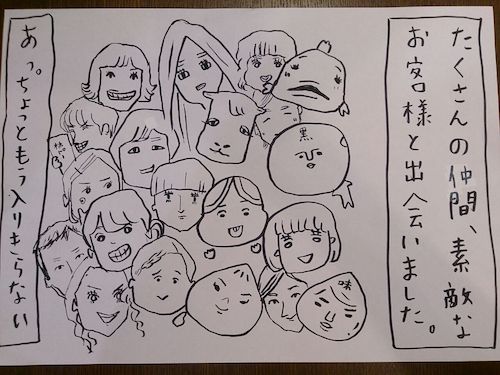 たくさんの仲間、素敵な
お客様と出会いました。
あっ。ちょっともう入りきらない
黒
味